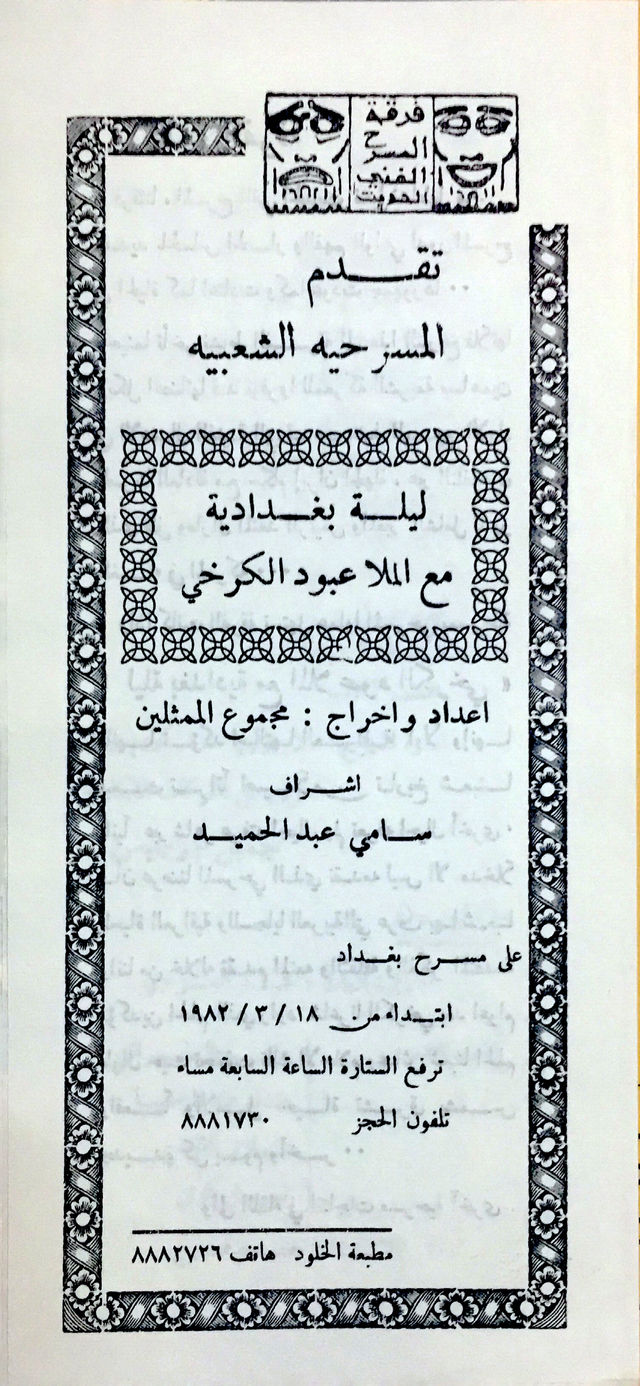 فرقة
المسرح
الفني
الحديث
تقدم
المسرحيه الشعبيه
ليلة بغدادية
مع الملا عبود الكرخي
اعداد واخراج : مجموع الممثلين
اشراف
سامي عبد الحميد
على مسرح بغداد
ابتداء من ١٨ / ٣ / ١٩٨٢
ترفع الستارة الساعة السابعة مساء
تلفون الحجز ٨٨٨١٧٣٠
مطبعة الخلود هاتف ٨٨٨٢٧٢٦